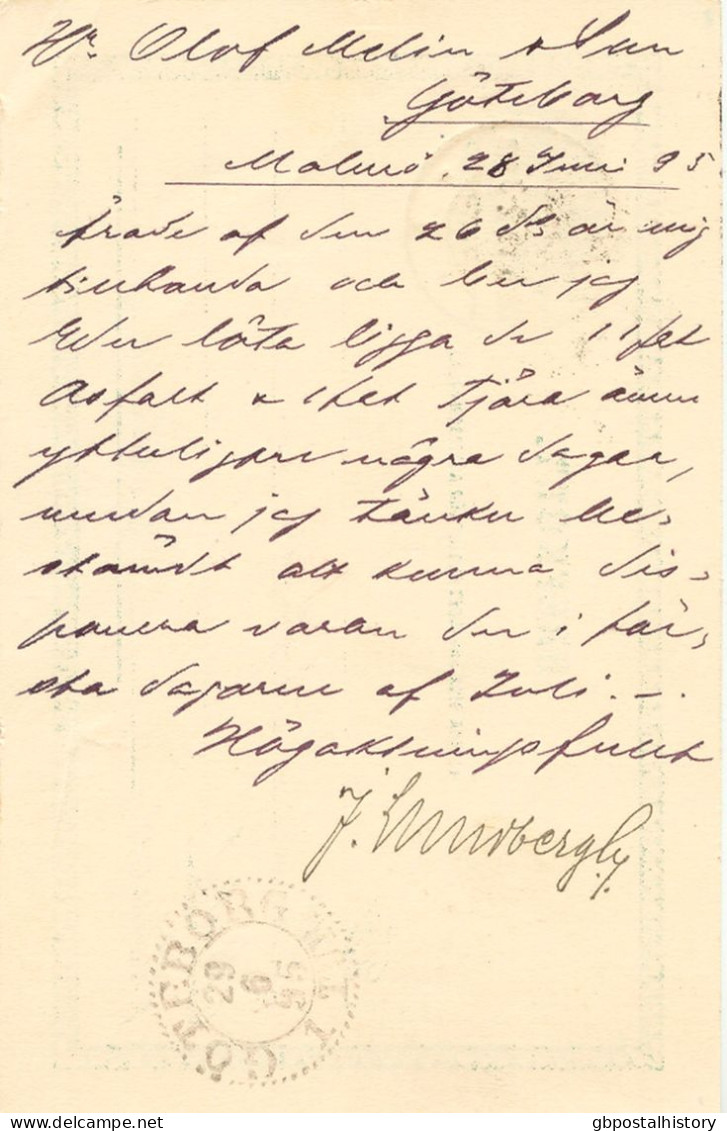 Hr. Olof Melin & Son
Göteborg
Malmö 28 Juni 95
Ärade af den 26 ds är mig
tillhanda och ber jag
Eder låta ligga de 11 fat
Asfalt & 1 fat Tjära ännu
ytterligare några dagar,
medan jag tänker be-
stämdt att kunna dis-
ponera varan der i för-
sta dagarne af Juli. –
Högaktningsfullt
J. Lundbergh
GÖTEBORG 1 
29
6
95
gbpostalhistory